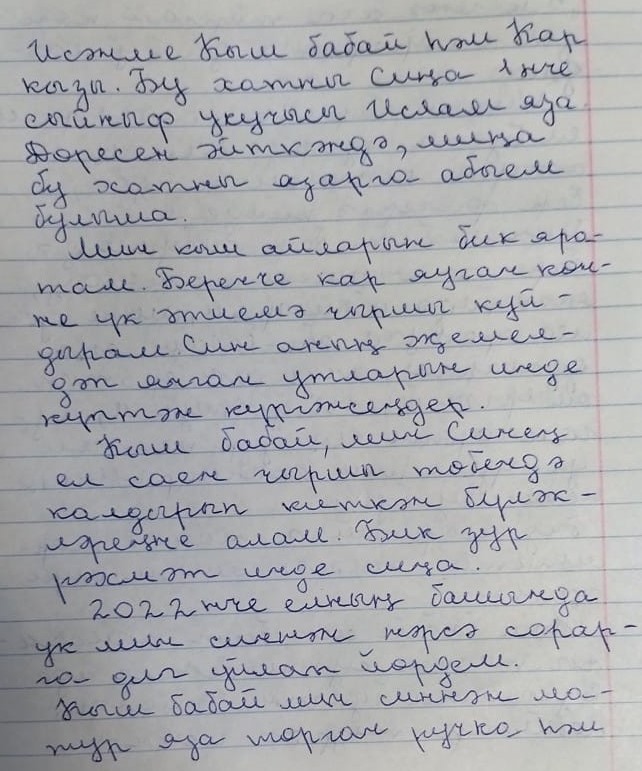 Исәнме Кыш бабай һәм Кар
кызы. Бу хатны Сиңа 1нче
сыйныф укучысы Ислам яза.
Дөресен әйткәндә, миңа
бу хатны язарга абыем
булыша.
Мин кыш айларын бик яра-
там. Беренче кар яуган көн-
не үк әтиемә чыршы куй-
дырам. Син аның җемел-
дәп янган утларын инде
күптән күргәнсеңдер.
Кыш бабай, мин Синең
ел саен чыршы төбендә
калдырып киткән бүләк-
ләреңне алам. Бик зур
рәхмәт инде сиңа.
2022 нче елның башында
ук мин синнән нәрсә сорар-
га дип уйлап йөрдем.
Кыш бабай мин синнән ма-
тур яза торган ручка һәм